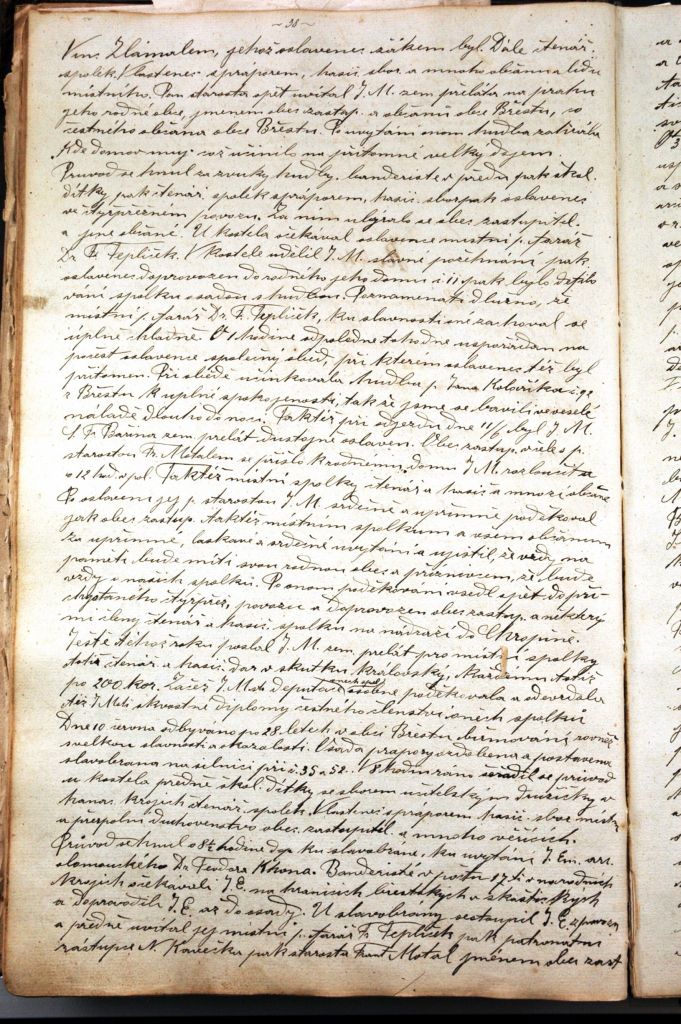 ~ 38 ~
Vinc. Zlámalem, jehož oslavenec žákem byl. Dále čtenář.
spolek Vlastenec s práporem, hasič. sbor a mnoho občanů a lidu
místního. Pan starosta opět uvítal J. M. zem. preláta na prahu
jeho rodné obce, jménem obec. zastup. a občanů obce Břestu, co
čestného občana obce Břestu. Po uvytání onom hudba zahrála
„Kde domov můj“ což učinilo na přítomné velký dojem.
Průvod se hnul za zvuky hudby, banderisté v předu pak škol.
dítky, pak čtenář. spolek s práporem, hasič. sbor pak oslavenec
ve čtyřpřežném povozu. Za ním ubýralo se obec. zastupitel.
a jiné občané. U kostela očekával oslavence místní p. farář
Dr. Fr. Teplíček. V kostele udělil J. M. slavné požehnání, pak
oslavenec doprovozen do rodného jeho domu č. 11 pak bylo defilo
vání spolků a sadou s hudbou. Poznamenati dlužno, že
místní p. farář Dr. F. Teplíček, ku slavnosti oné zachoval se
úplně hladně. O 1 hodině odpoledne toho dne uspořádán na
počest oslavence společný oběd, při kterém oslavenec též byl
přítomen. Při obědě účinkovala hudba p. Jana Koloříka č. 92
z Břestu k úplné spokojenosti, tak že jsme se bavili ve veselé
náladě dlouho do noci. Taktéž při odjezdu dne 11/6 byl J. M.
P. Fr. Bařina zem. prelát důstojně oslaven. Obec. zastup. v čele s p.
starostou Fr. Motalem se přišlo k rodnému domu J. M. rozloučit a
o 12 hod. v pol. Taktéž místní spolky čtenář. a hasič. a mnozí občané
Po oslovení jej p. starostou J. M. srdečně a upřímně poděkoval
jak obec. zastup. taktéž místním spolkům a všem občanům
za upřímné, laskavé a srdečné uvytání a ujistil, že vždy na
paměti bude míti svou rodnou obec a příznivcem, že bude
vždy i našich spolků. Po onom poděkování vsedl opět do při
chystaného čtyřpřež. povozu a doprovozen obec. zastup. a některý
mi členy čtenář. a hasič. spolku na nádraží do Chropině.
Ještě téhož roku poslal J. M. zem. prelát pro místní spolky
totiž čtenář. a hasič. dar v skutku královský, každému totiž
po 200 kor. Začež J. M. sti deputace oněch spol. osobně poděkovala a odevzdala
též J. M. sti skvostné diplomy čestného členství oněch spolků
Dne 10 června odbýváno po 28. letech v obci Břestu biřmování rovněž
s velkou slavností a okázalostí. Osada prapory ozdobena a postavena
slavobrána na silnici při č. 35 a 52. V 8 hodin ráno seřadil se průvod
u kostela předně škol. dítky se sborem učitelským družičky v
hanác. krojích čtenář. spolek „Vlastenec“ s práporem, hasič. sbor místní
a přespolní duchovenstvo obec. zastupitel. a mnoho věřících.
Průvod se hnul o 8½ hodině dop. ku slavobráně, ku uvytání J. Em. arc.
olomouckého Dr. Teodora Khona. Banderisté v počtu 17 ti v národních
krojích očekávali J. E. na hranicích břestských a skaštických
a doprovodili J. E. až do osady. U slavobrány sestoupil J. E. z povozu
a předně uvítal jej místní p. farář Fr. Teplíček pak patronátní
zástupce N. Karečka pak starosta Frant. Motal jménem obec. zast